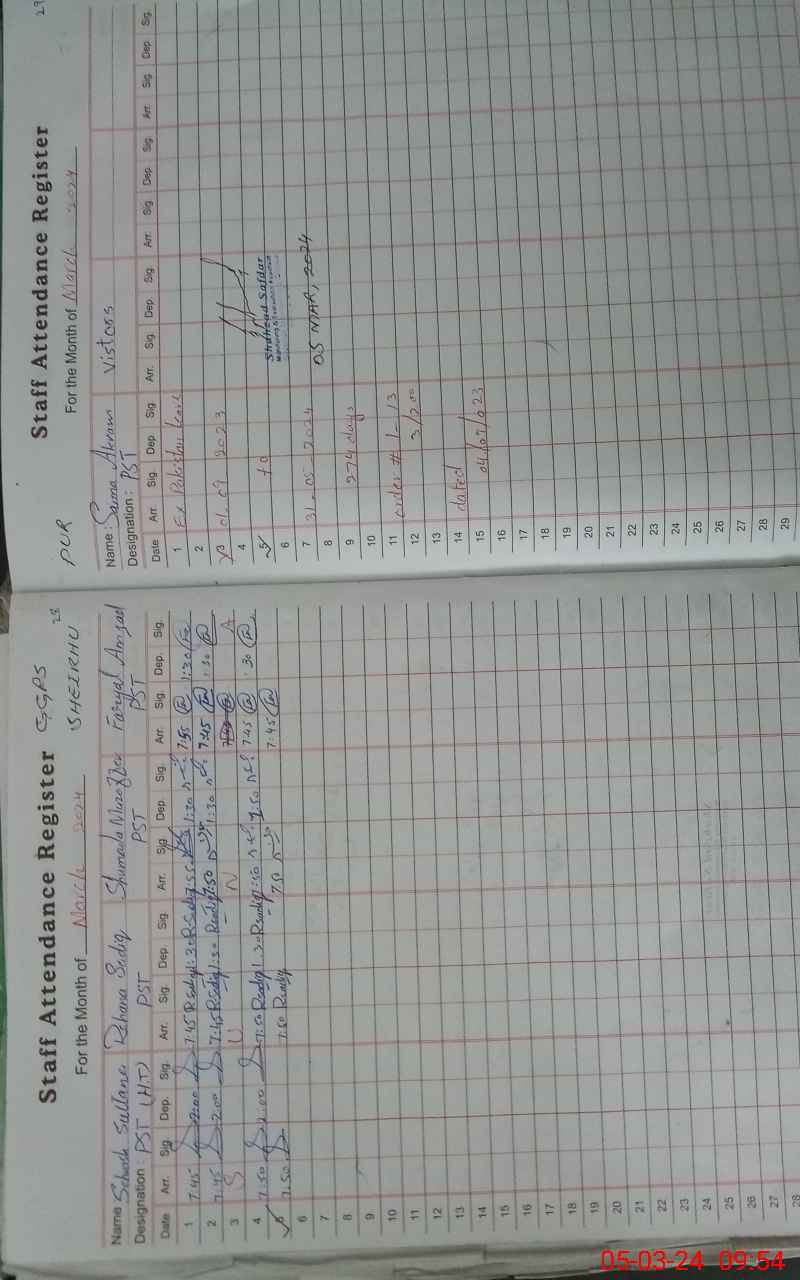 Staff Attendance Register GGPS
For the Month of March 2024 SHEIKHU 28
Name Sehrish Sultana Rehana Sadiq Shumaila Muzaffar Faryal Amjad
Designation: PST (HT) PST PST PST
Date Arr. Sig. Dep. Sig. Arr. Sig. Dep. Sig. Arr. Sig. Dep. Sig. Arr. Sig. Dep. Sig.
1 7.45 2:00 7.45 RSadiq 1:30 RSadiq 7.55 1:30 7:55 1:30
2 7.45 2.00 7.45 RSadiq 1:30 RSadiq 7.50 1:30 7:45 1:30
3 S U N A
4 7.50 2:00 7:50 RSadiq 1.30 RSadiq 7:50 1:50 7:45 1:30
5 7.50 7.50 RSadiq 7.50 7:45
6
7
8
9
10
11
12
13
14
15
16
17
18
19
20
21
22
23
24
25
26
27
28
PUR Staff Attendance Register 29
For the Month of March 2024
Name: Saima Akram Vistors
Designation: PST
Date Arr. Sig. Dep. Sig. Arr. Sig. Dep. Sig. Arr. Sig. Dep. Sig. Arr. Sig. Dep. Sig.
1 Ex Pakistan Leave
2
3 01.09 2023
4
5 to Shahzad Safdar
6
7 31-05-2024 05 MAR, 2024
8
9 274 days
10
11 order # 1-13
12 3/200
13
14 dated
15 04/09/023
16
17
18
19
20
21
22
23
24
25
26
27
28
29
05-03-24 09:54